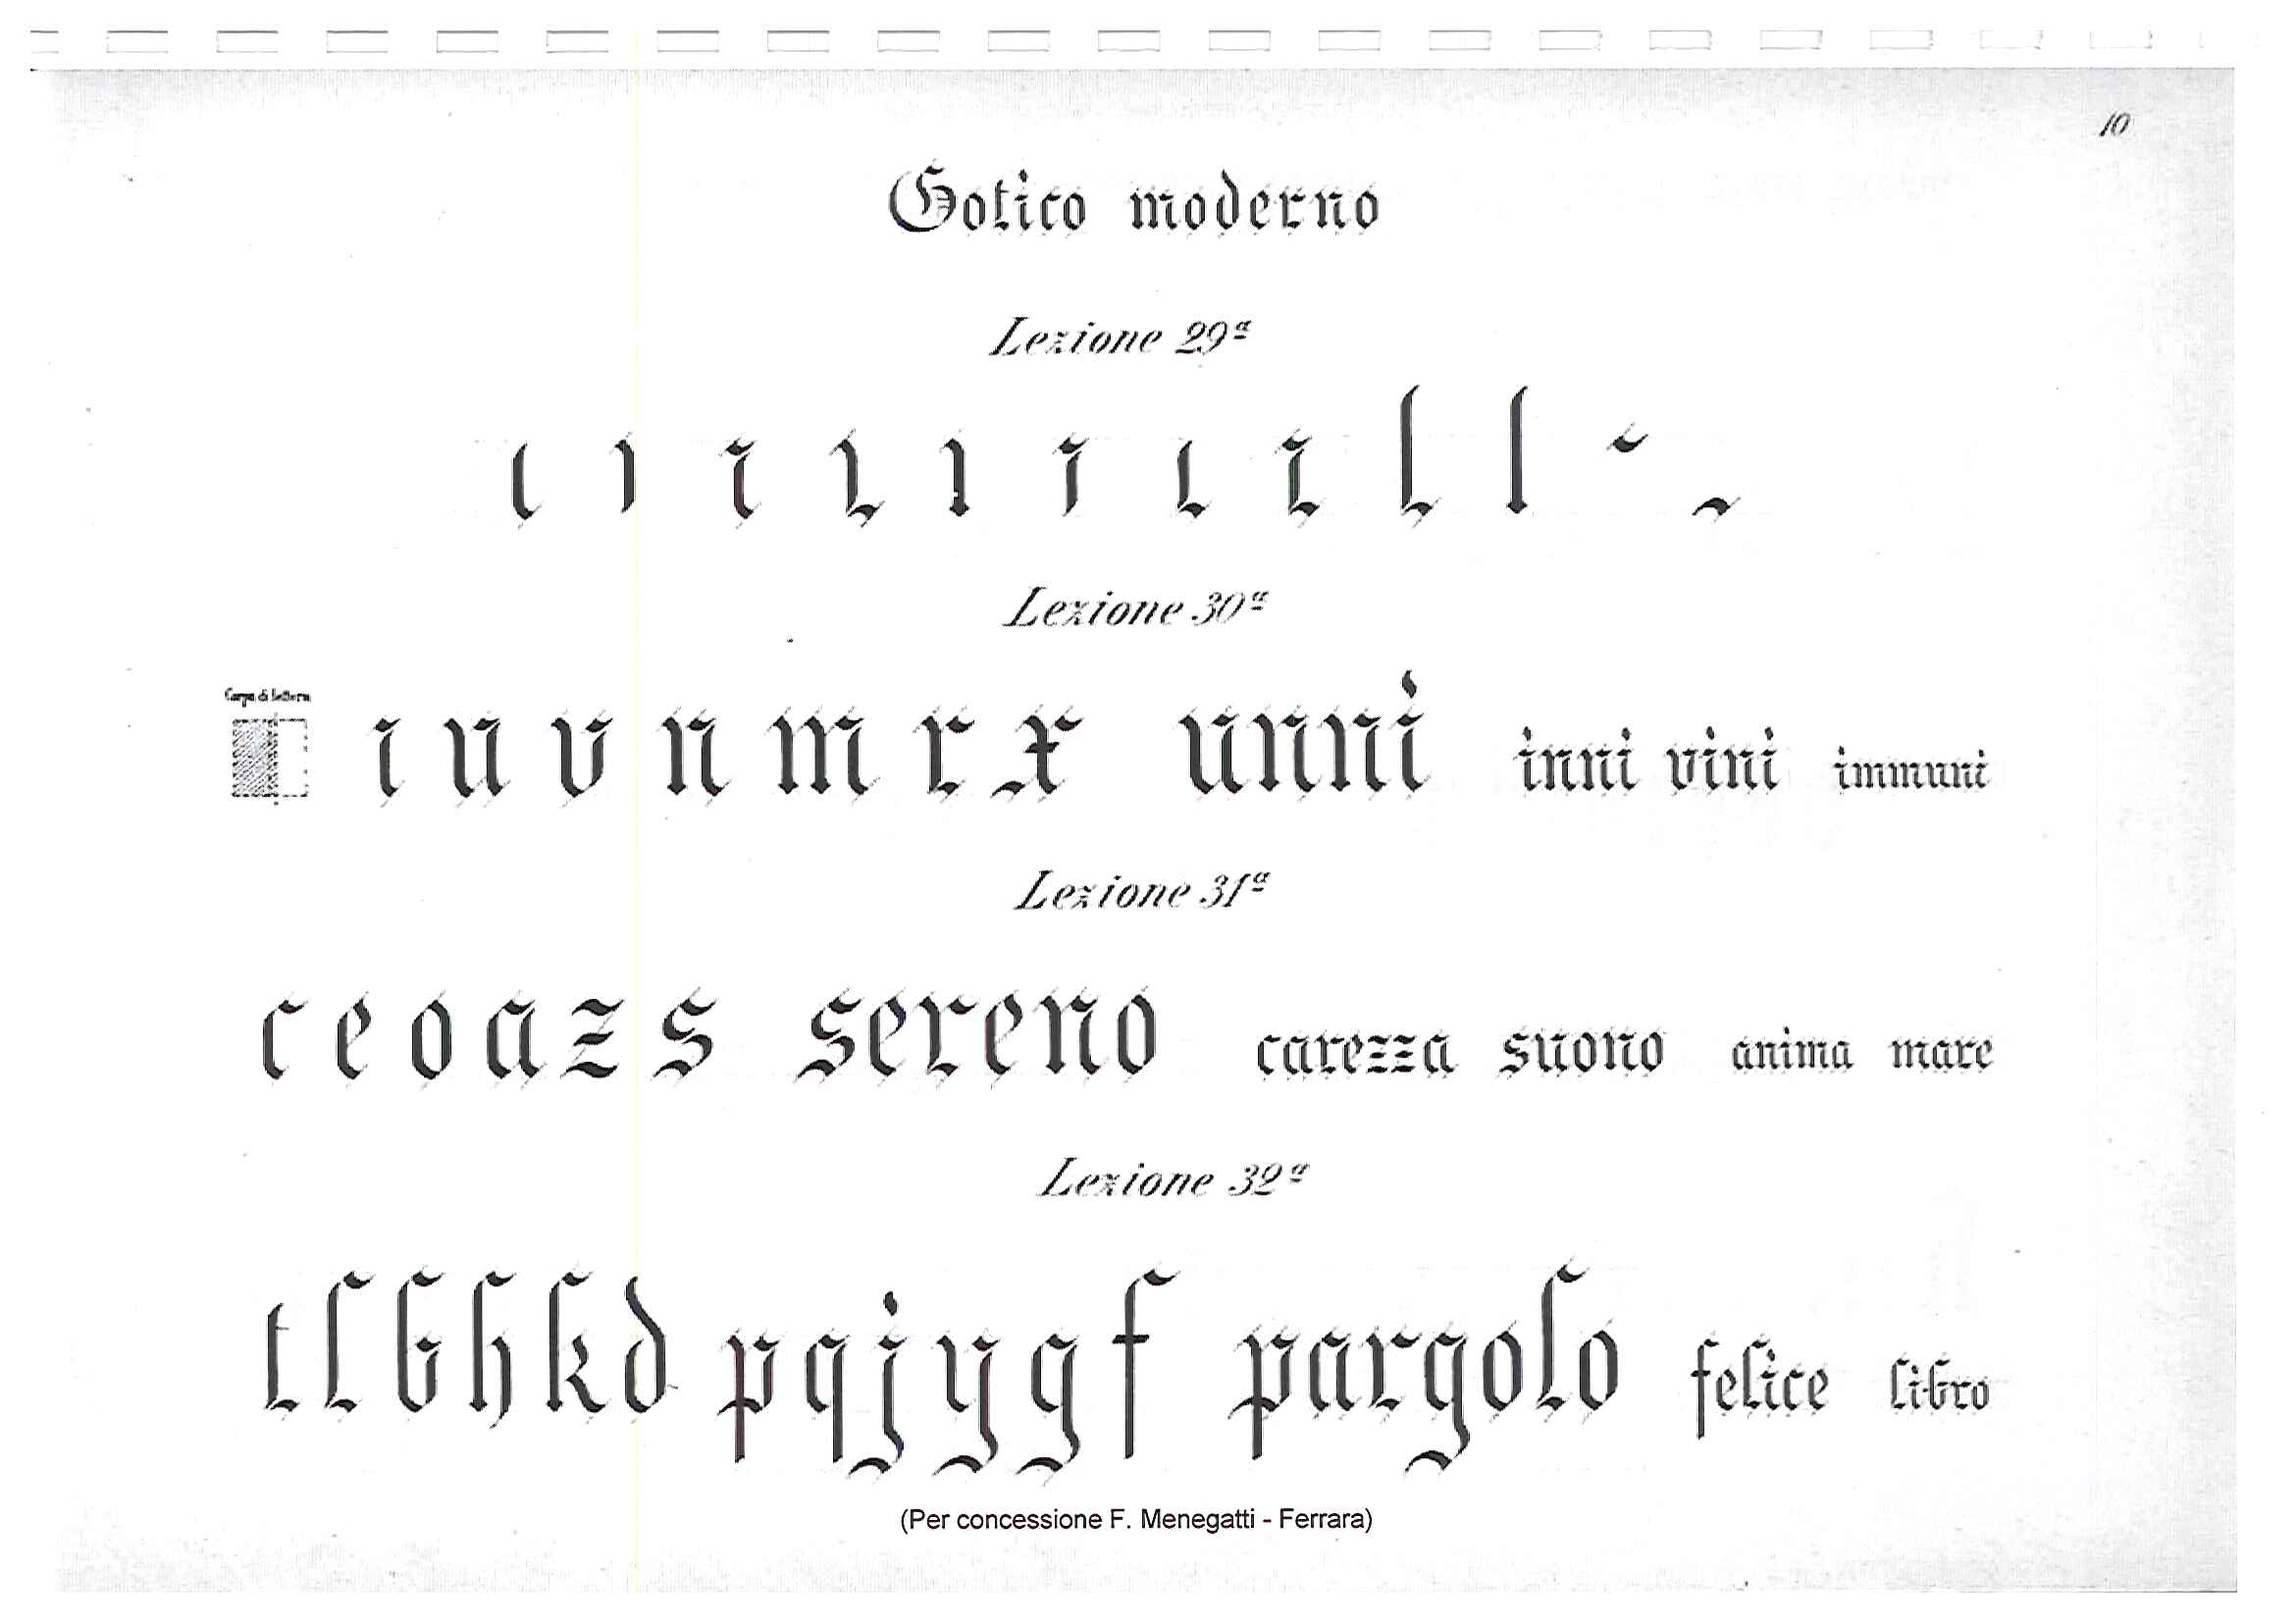 10
Gotico moderno
Lezione 29ª
Lezione 30ª
Corpo di lettera
i u v n m r x unni inni vini immuni
Lezione 31ª
c e o a z s sereno carezza suono anima mare
Lezione 32ª
t l b h k d p q j y g f pargolo felice libro
(Per concessione F. Menegatti - Ferrara)